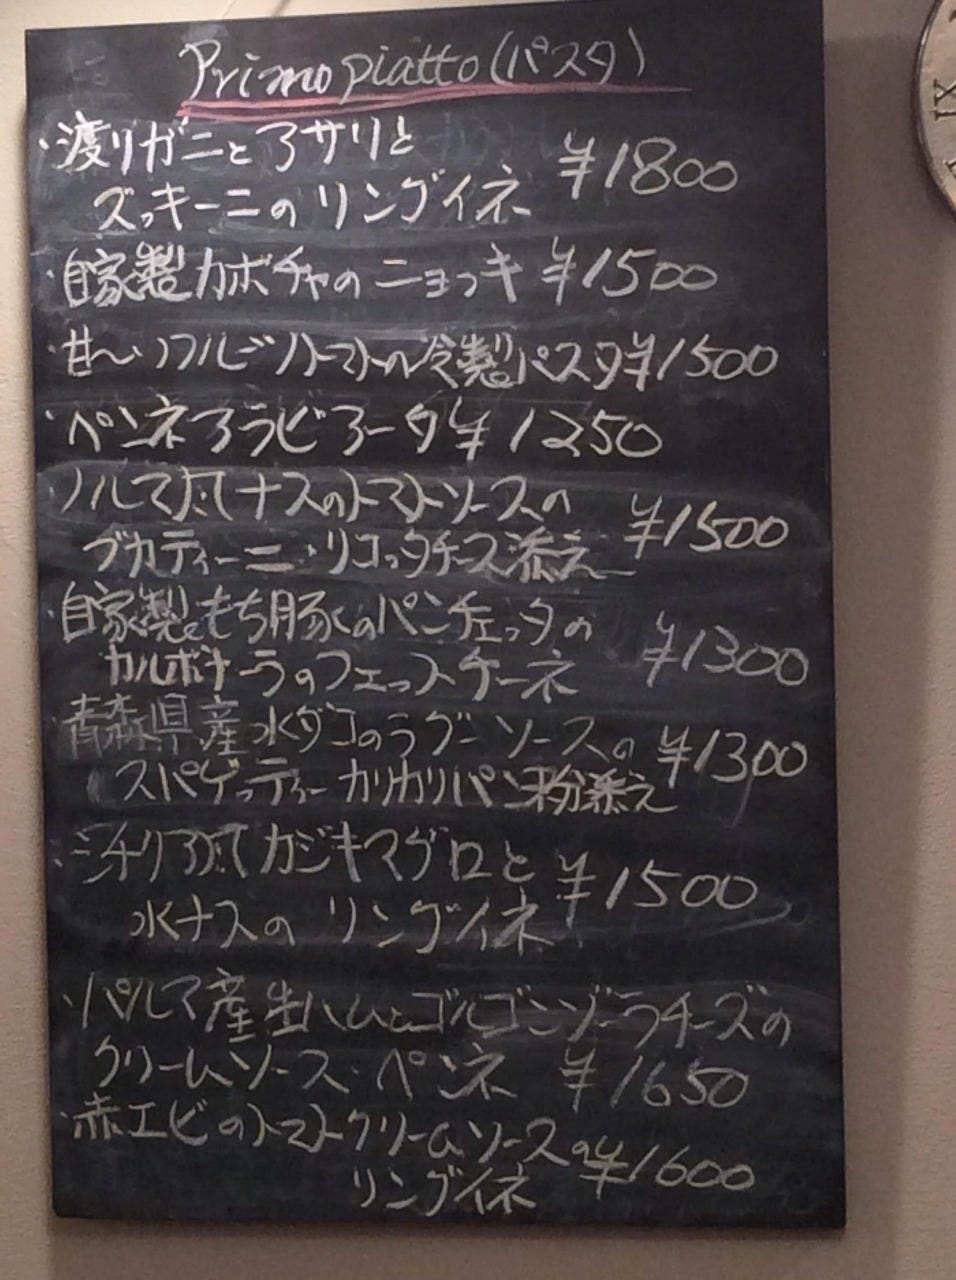 Primo piatto(パスタ)
・渡りガニとアサリと
ズッキーニのリングイネ ¥1800
・自家製カボチャのニョッキ ¥1500
・甘〜いフルーツトマトの冷製パスタ¥1500
・ペンネアラビアータ ¥1250
ノルマ風ナスのトマトソースの
ブカティーニ・リコッタチーズ添え ¥1500
・自家製もち豚のパンチェッタの
カルボナーラのフェットチーネ ¥1300
青森県産水ダコのラグーソースの
スパゲッティーカリカリパン粉添え ¥1300
・シチリア風カジキマグロと
水ナスのリングイネ ¥1500
・パルマ産生ハムとゴルゴンゾーラチーズの
クリームソース・ペンネ ¥1650
・赤エビのトマトクリームソースの
リングイネ ¥1600
IX